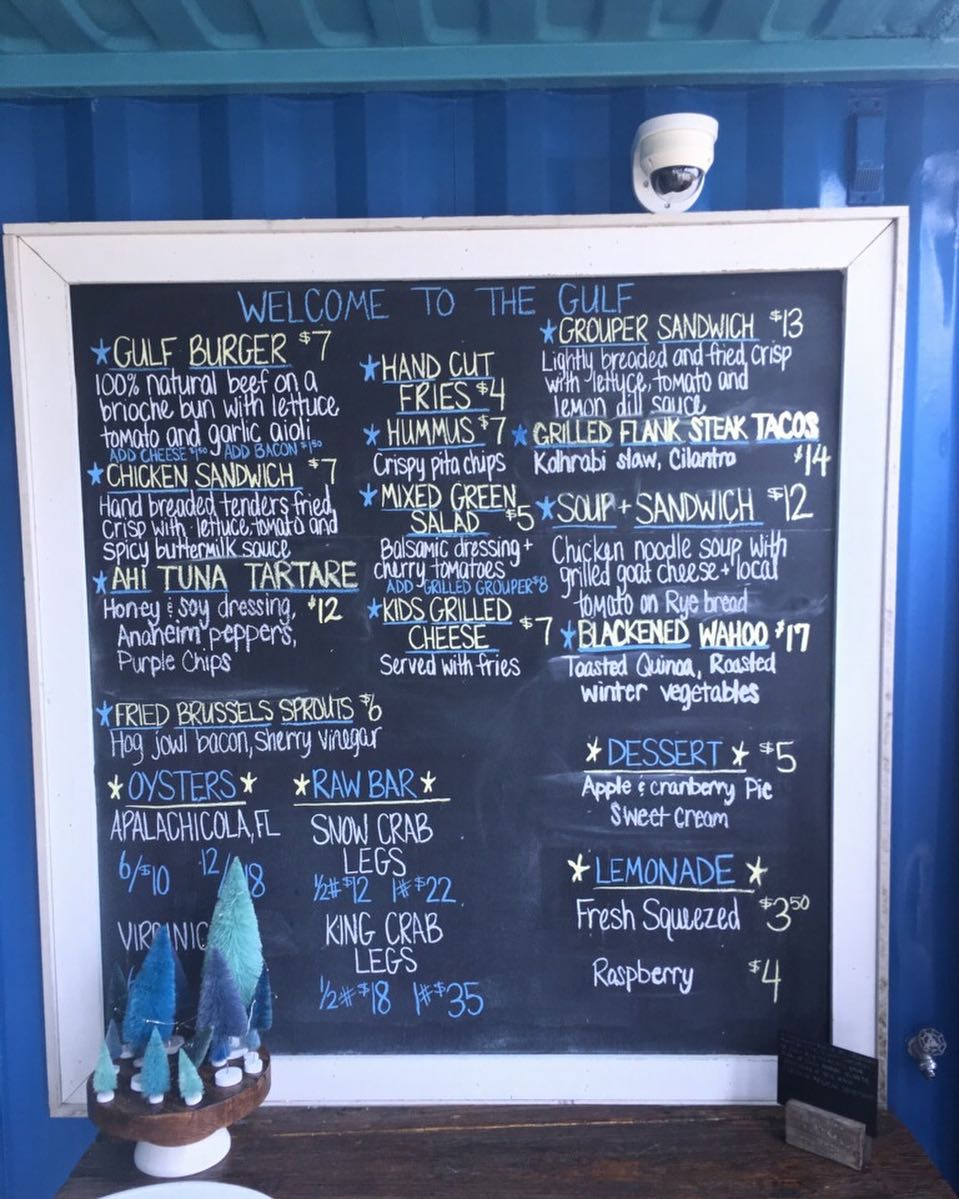 WELCOME TO THE GULF
GULF BURGER $7
100% natural beef on a
brioche bun with lettuce,
tomato and garlic aioli
ADD CHEESE $1.50 ADD BACON $1.50
CHICKEN SANDWICH $7
Hand breaded tenders fried
crisp with lettuce, tomato and
spicy buttermilk sauce
AHI TUNA TARTARE
Honey & soy dressing, $12
Anaheim peppers,
Purple Chips
FRIED BRUSSELS SPROUTS $6
Hog jowl bacon, sherry vinegar
OYSTERS
APALACHICOLA, FL
6/$10 12/18
RAW BAR
SNOW CRAB
LEGS
½# $12 1# $22
KING CRAB
LEGS
½# $18 1# $35
HAND CUT
FRIES $4
HUMMUS $7
Crispy pita chips
MIXED GREEN
SALAD $5
Balsamic dressing +
cherry tomatoes
ADD GRILLED GROUPER $8
KIDS GRILLED
CHEESE $7
Served with fries
GROUPER SANDWICH $13
Lightly breaded and fried crisp
with lettuce, tomato and
lemon dill sauce
GRILLED FLANK STEAK TACOS
Kolhrabi slaw, Cilantro $14
SOUP + SANDWICH $12
Chicken noodle soup with
grilled goat cheese + local
tomato on Rye bread
BLACKENED WAHOO $17
Toasted Quinoa, Roasted
winter vegetables
DESSERT $5
Apple & cranberry Pie
Sweet cream
LEMONADE
Fresh Squeezed $3.50
Raspberry $4